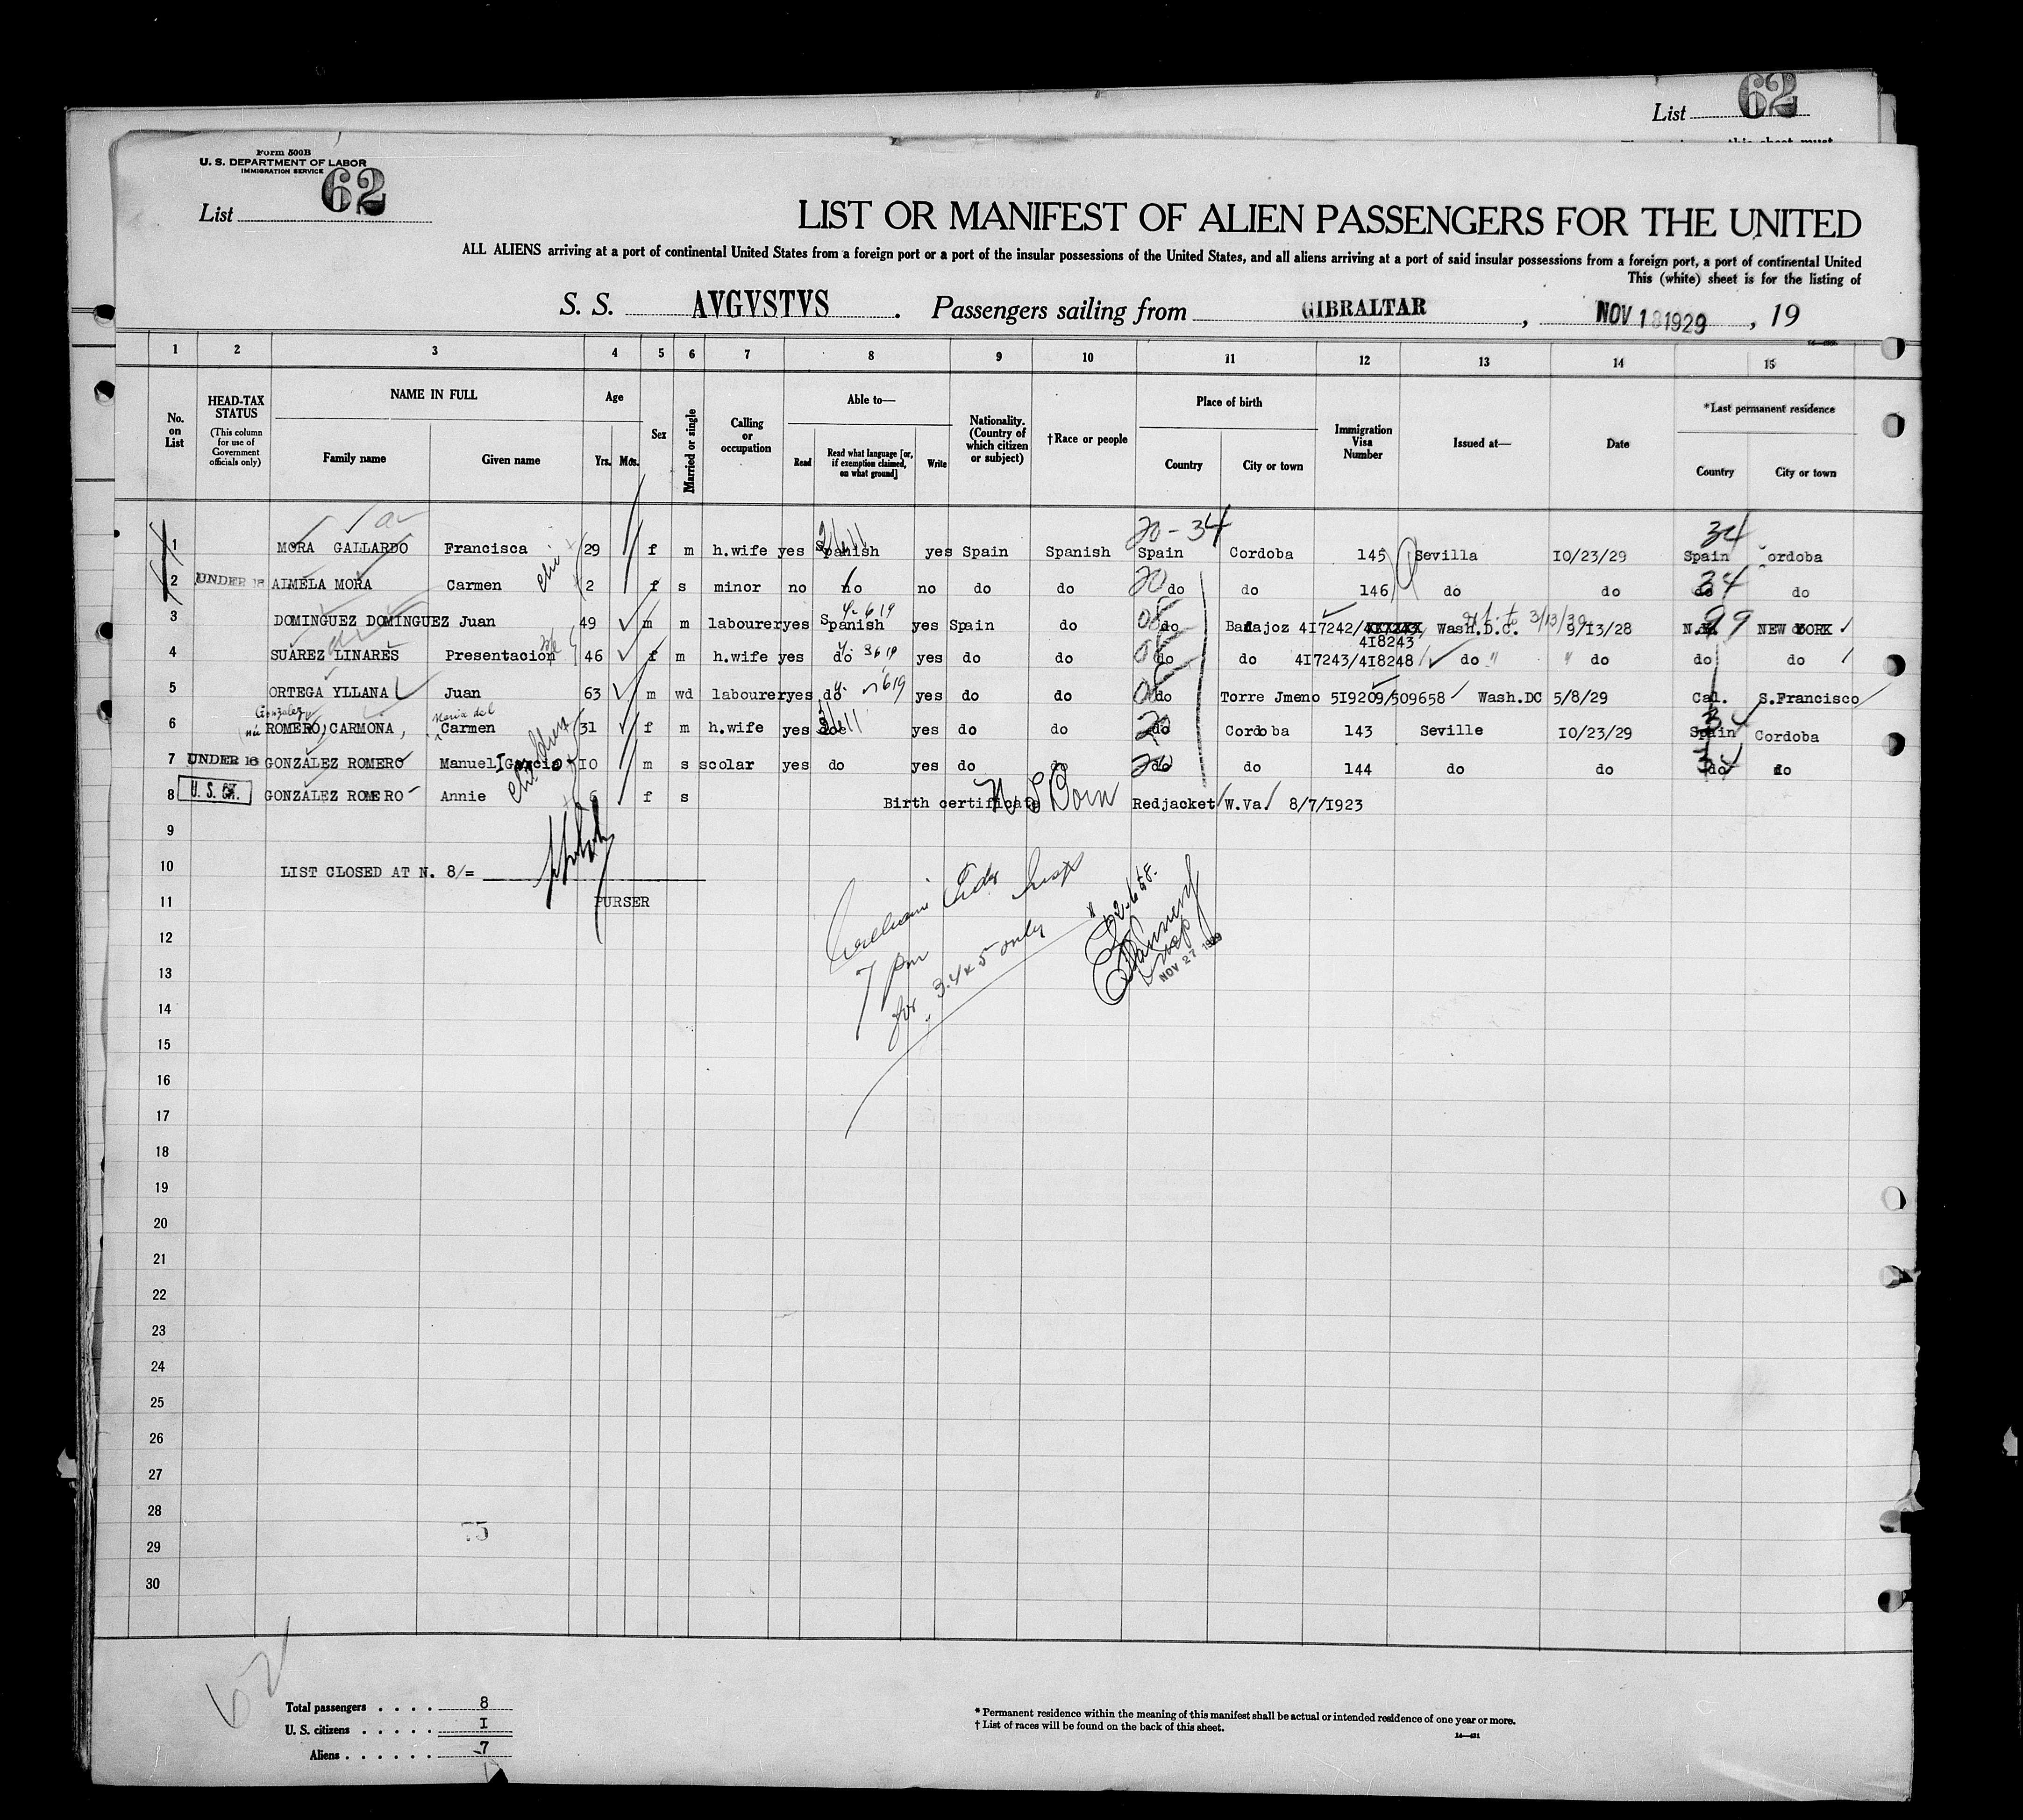 List 62
Form 500B
U. S. DEPARTMENT OF LABOR
IMMIGRATION SERVICE
List 62
LIST OR MANIFEST OF ALIEN PASSENGERS FOR THE UNITED
ALL ALIENS arriving at a port of continental United States from a foreign port or a port of the insular possessions of the United States, and all aliens arriving at a port of said insular possessions from a foreign port, a port of continental United
This (white) sheet is for the listing of
S. S. AVGVSTVS . Passengers sailing from GIBRALTAR , NOV 18 1929 , 19
1 2 3 4 5 6 7 8 9 10 11 12 13 14 15
No. on List
HEAD-TAX STATUS (This column for use of Government officials only)
NAME IN FULL
Family name Given name
Age
Yrs. Mos.
Sex
Married or single
Calling or occupation
Able to—
Read Read what language [or, if exemption claimed, on what ground] Write
Nationality. (Country of which citizen or subject)
†Race or people
Place of birth
Country City or town
Immigration Visa Number
Issued at—
Date
*Last permanent residence
Country City or town
20 - 34 34
1 MORA GALLARDO Francisca 29 f m h.wife yes Spanish yes Spain Spanish Spain Cordoba 145 Sevilla I0/23/29 Spain Cordoba
2 UNDER 16 AIMELA MORA Carmen 2 f s minor no no no do do 20 do do 146 do do 34 do do
3 DOMINGUEZ DOMINGUEZ Juan 49 m m labourer yes Spanish yes Spain do do Badajoz 4I7242/ Wash.D.C. 3/13/30 9/I3/28 N.Y. 99 NEW YORK
4I8243
4 SUAREZ LINARES Presentacion 46 f m h.wife yes do yes do do do do 4I7243/4I8248 do " " do do do
5 ORTEGA YLLANA Juan 63 m wd labourer yes do yes do do do Torre Jmeno 5I9209/509658 Wash.DC 5/8/29 Cal. S.Francisco
Gonzalez Maria del
6 ROMERO, CARMONA, Carmen 31 f m h.wife yes do yes do do 20 do Cordoba 143 Seville I0/23/29 34 Spain Cordoba
7 UNDER 16 GONZALEZ ROMERO Manuel Garcia I0 m s scolar yes do yes do do 20 do do 144 do do 34 do do
children
8 U. S. CIT. GONZALEZ ROMERO Annie 6 f s Birth certificate U S Born Redjacket W.Va. 8/7/I923
9
10 LIST CLOSED AT N. 8/=
11 PURSER
12
7 pm
for 3.4 & 5 only
Insp
NOV 27 1929
13
14
15
16
17
18
19
20
21
22
23
24
25
26
27
28
75
29
30
62
Total passengers . . . . 8
U. S. citizens . . . . . I
Aliens . . . . . . 7
* Permanent residence within the meaning of this manifest shall be actual or intended residence of one year or more.
† List of races will be found on the back of this sheet.